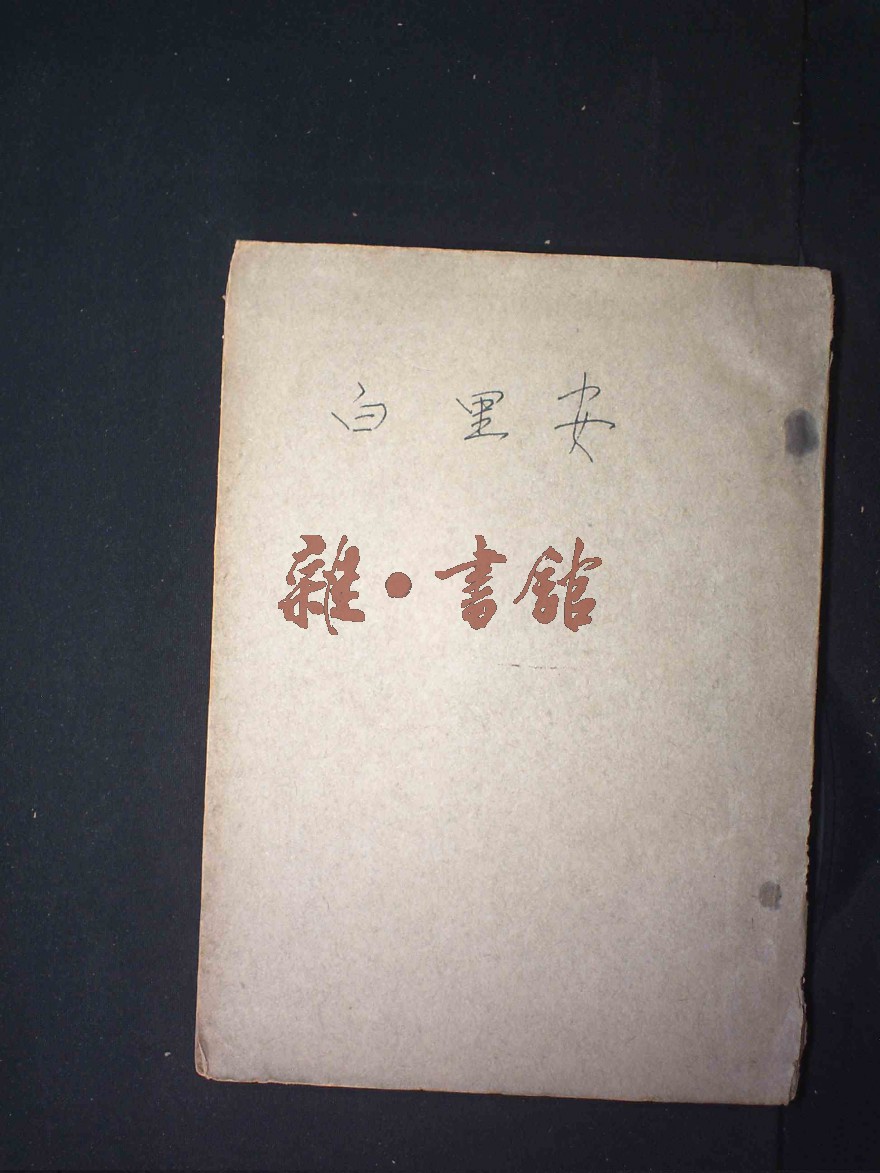 白里安
雜·書館